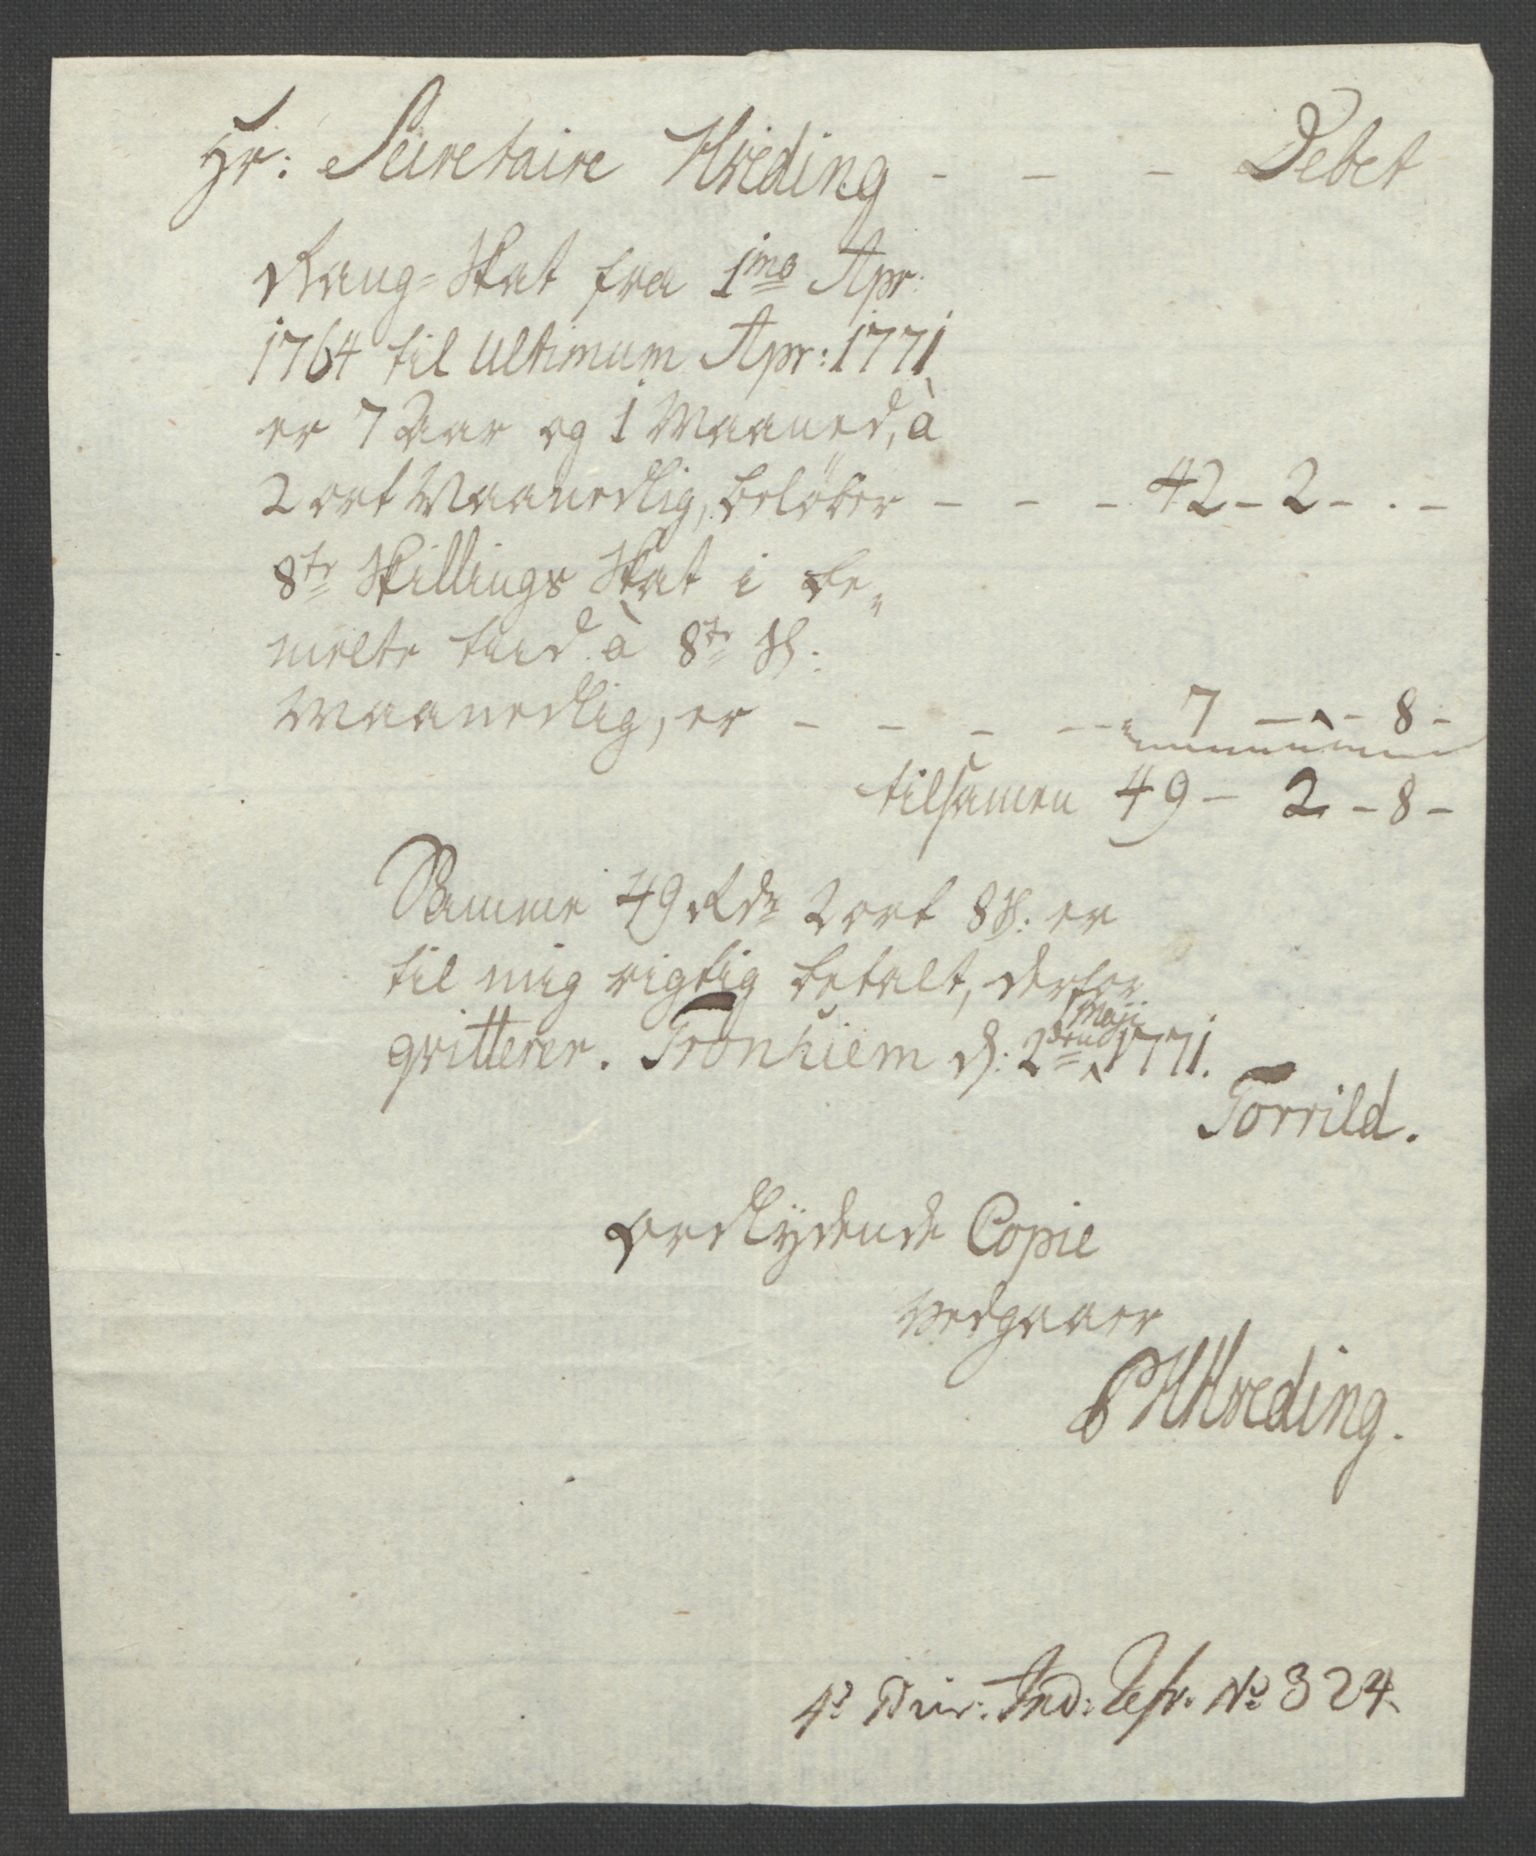 Hr: Secretaire Hveding - - - Debet
Rang-Skat fra 1mo Apr:
1764 til ultimum Apr: 1771
er 7 Aar og 1 Maaned, à
2 ort Maanedlig, beløber - - - 42 - 2 - . -
8te Skillings Skat i be„
melte tiid à 8te s:
Maanedlig, er - - - - 7 - „ - 8 -
tilsamen 49 - 2 - 8 -
Samme 49 Rdr 2 ort 8 s: er
til mig rigtig betalt, derfor
qvitterer. Tronhiem d: 2den Maji 1771.
Torrild.
Ordlydende Copie
vedgaaer
PHHveding.
No 324